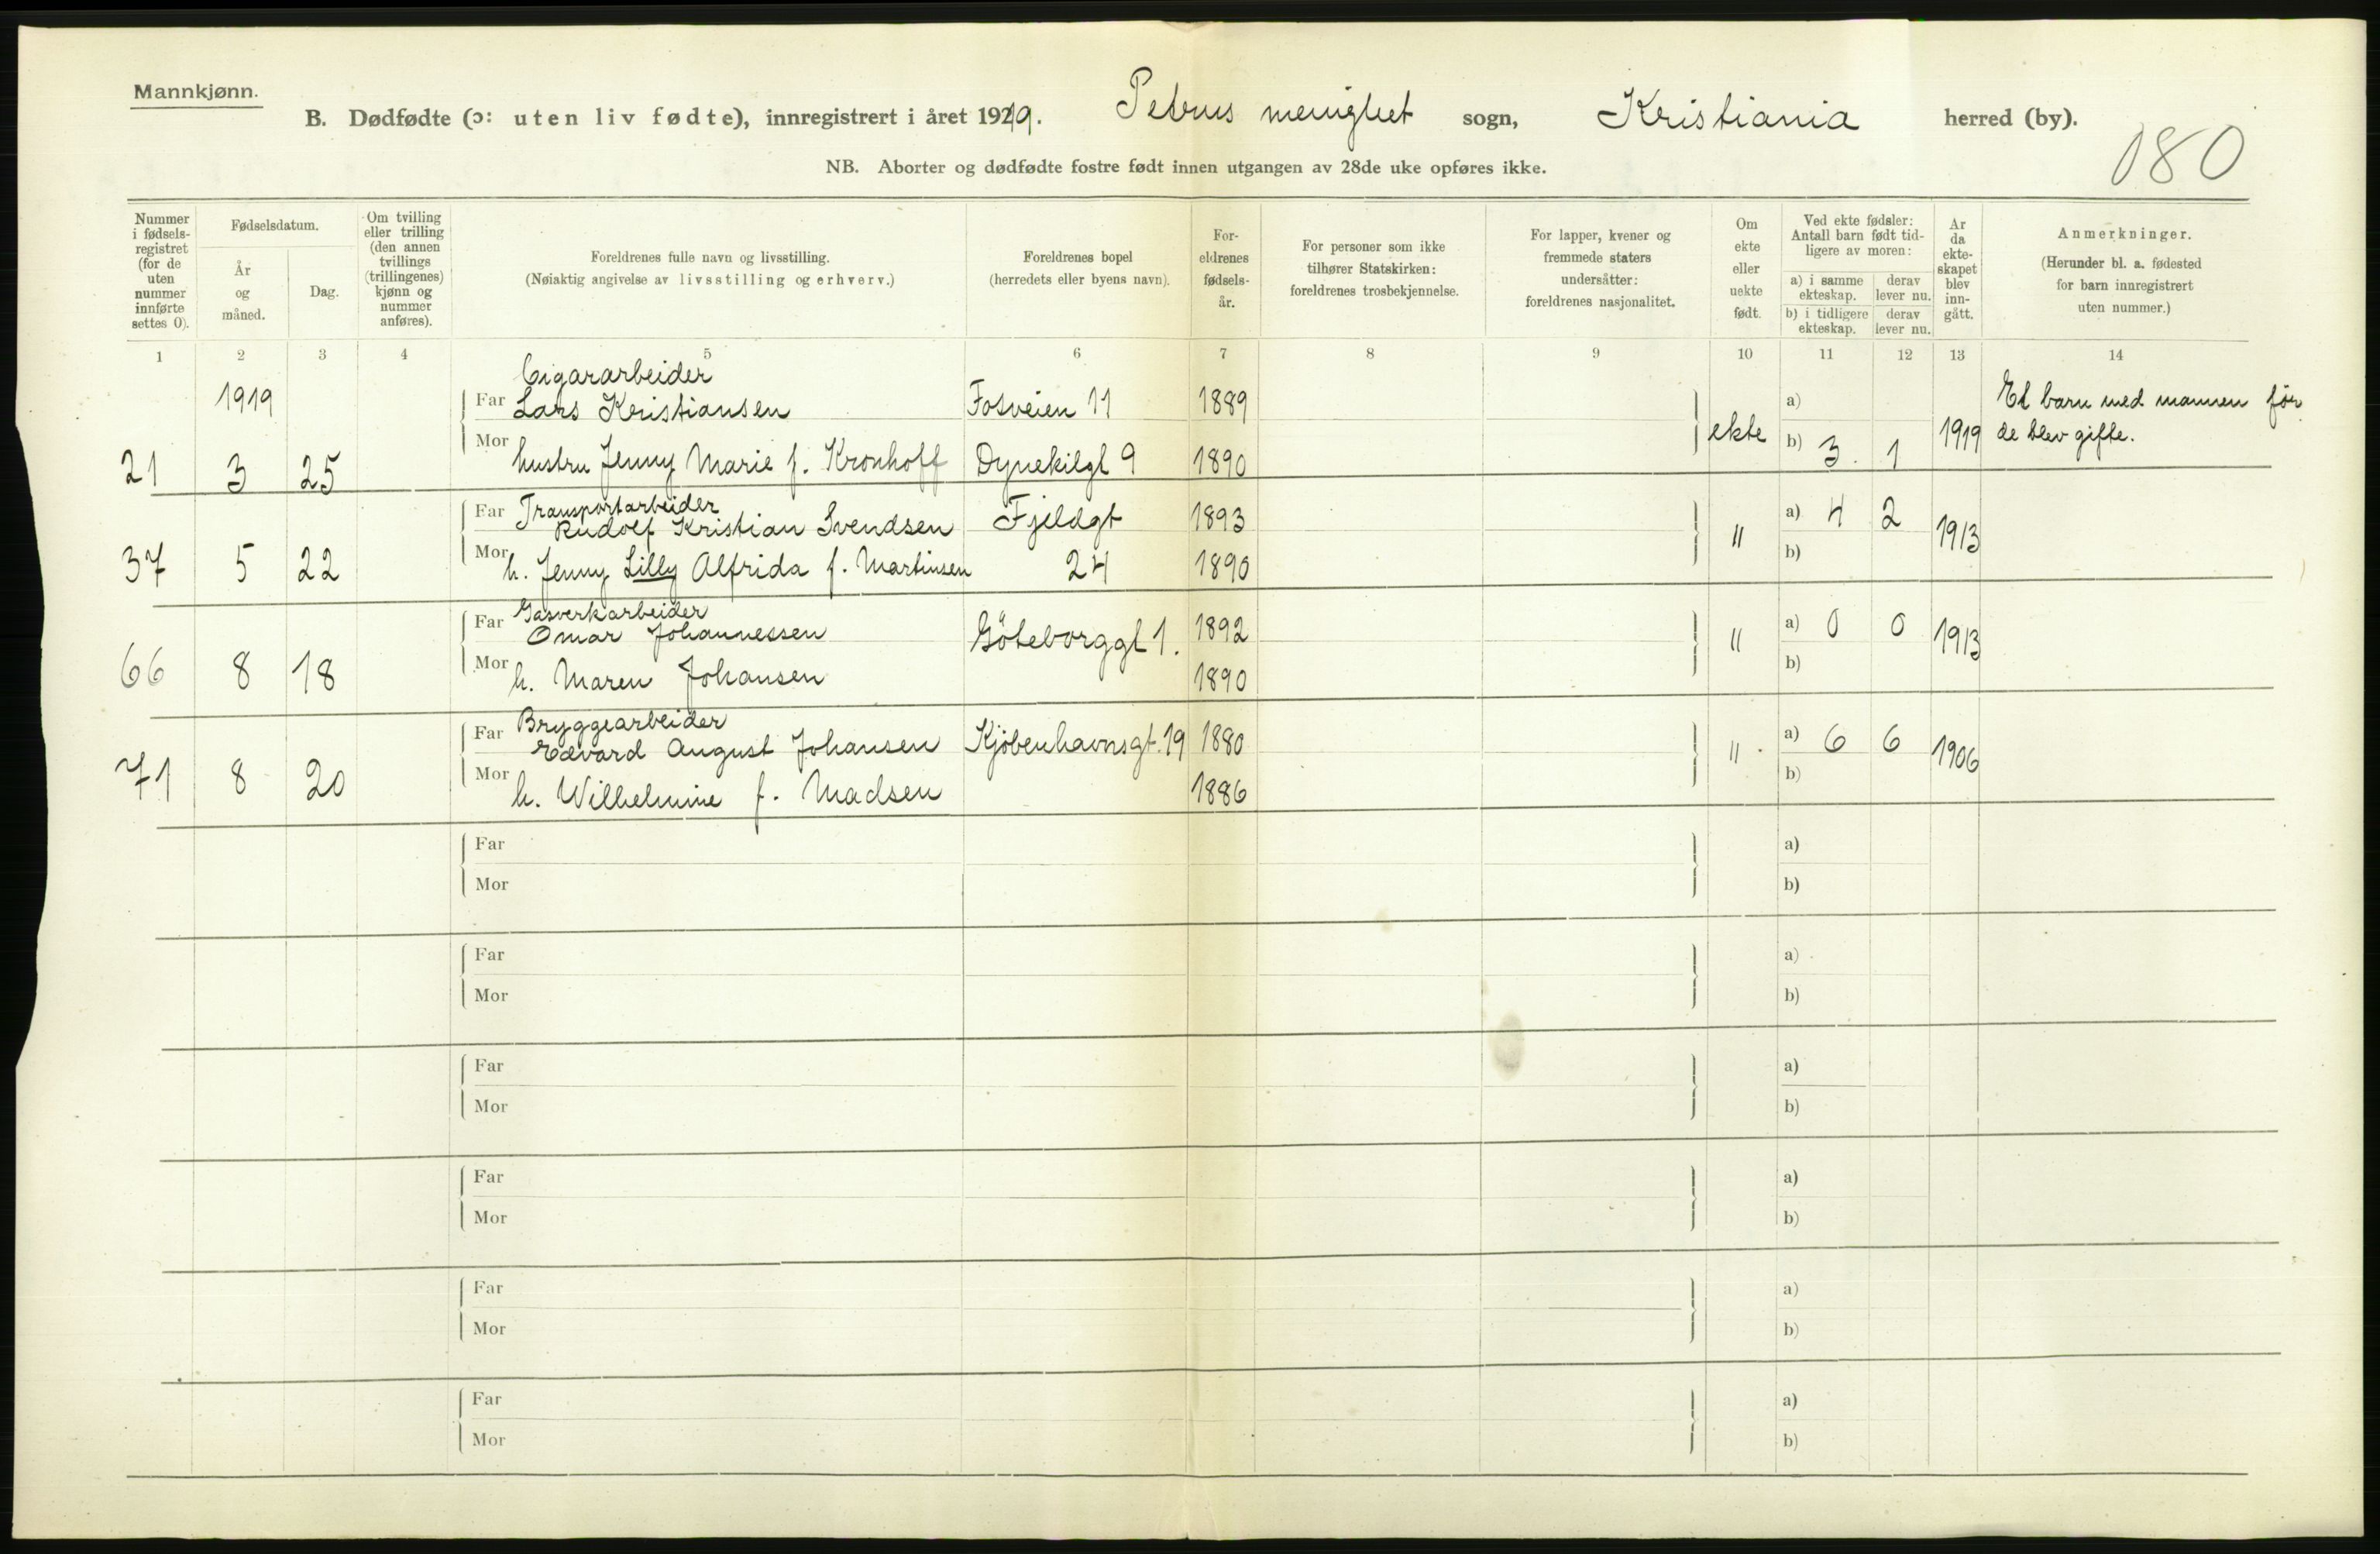 Mannkjønn.
B. Dødfødte (ɔ: uten liv fødte), innregistrert i året 1919. Petrus menighet sogn, Kristiania herred (by).
180
NB. Aborter og dødfødte fostre født innen utgangen av 28de uke opføres ikke.
Nummer i fødsels-registret (for de uten nummer innførte settes 0).
Fødselsdatum.
År og måned.
Dag.
Om tvilling eller trilling (den annen tvillings (trillingenes) kjønn og nummer anføres).
Foreldrenes fulle navn og livsstilling.
(Nøiaktig angivelse av livsstilling og erhverv.)
Foreldrenes bopel
(herredets eller byens navn).
For-eldrenes fødsels-år.
For personer som ikke tilhører Statskirken: foreldrenes trosbekjennelse.
For lapper, kvener og fremmede staters undersåtter: foreldrenes nasjonalitet.
Om ekte eller uekte født.
Ved ekte fødsler: Antall barn født tid-ligere av moren:
a) i samme ekteskap. derav lever nu.
b) i tidligere ekteskap. derav lever nu.
År da ekte-skapet blev inn-gått.
Anmerkninger.
(Herunder bl. a. fødested for barn innregistrert uten nummer.)
1 2 3 4 5 6 7 8 9 10 11 12 13 14
Cigararbeider
1919 Far Lars Kristiansen Fosveien 11 1889 a) Et barn med mannen før
21 3 25 Mor hustru Jenny Marie f. Kronhoff Dynekilgt 9 1890 ekte b) 3. 1 1919 de blev gifte.
Far Transportarbeider
Rudolf Kristian Svendsen Fjeldgt 1893 " a) 4 2 1913
37 5 22 Mor h. Jenny Lilly Alfrida f. Martinsen 24 1890 b)
Far Gasverkarbeider
Omar Johannessen Göteborggt 1. 1892 " a) 0 0 1913
66 8 18 Mor h. Maren Johansen 1890 b)
Far Bryggearbeider
Edvard August Johansen Kjöbenhavnsgt. 19 1880 " a) 6 6 1906
71 8 20 Mor h. Wilhelmine f. Madsen 1886 b)
Far a)
Mor b)
Far a)
Mor b)
Far a)
Mor b)
Far a)
Mor b)
Far a)
Mor b)
Far a)
Mor b)